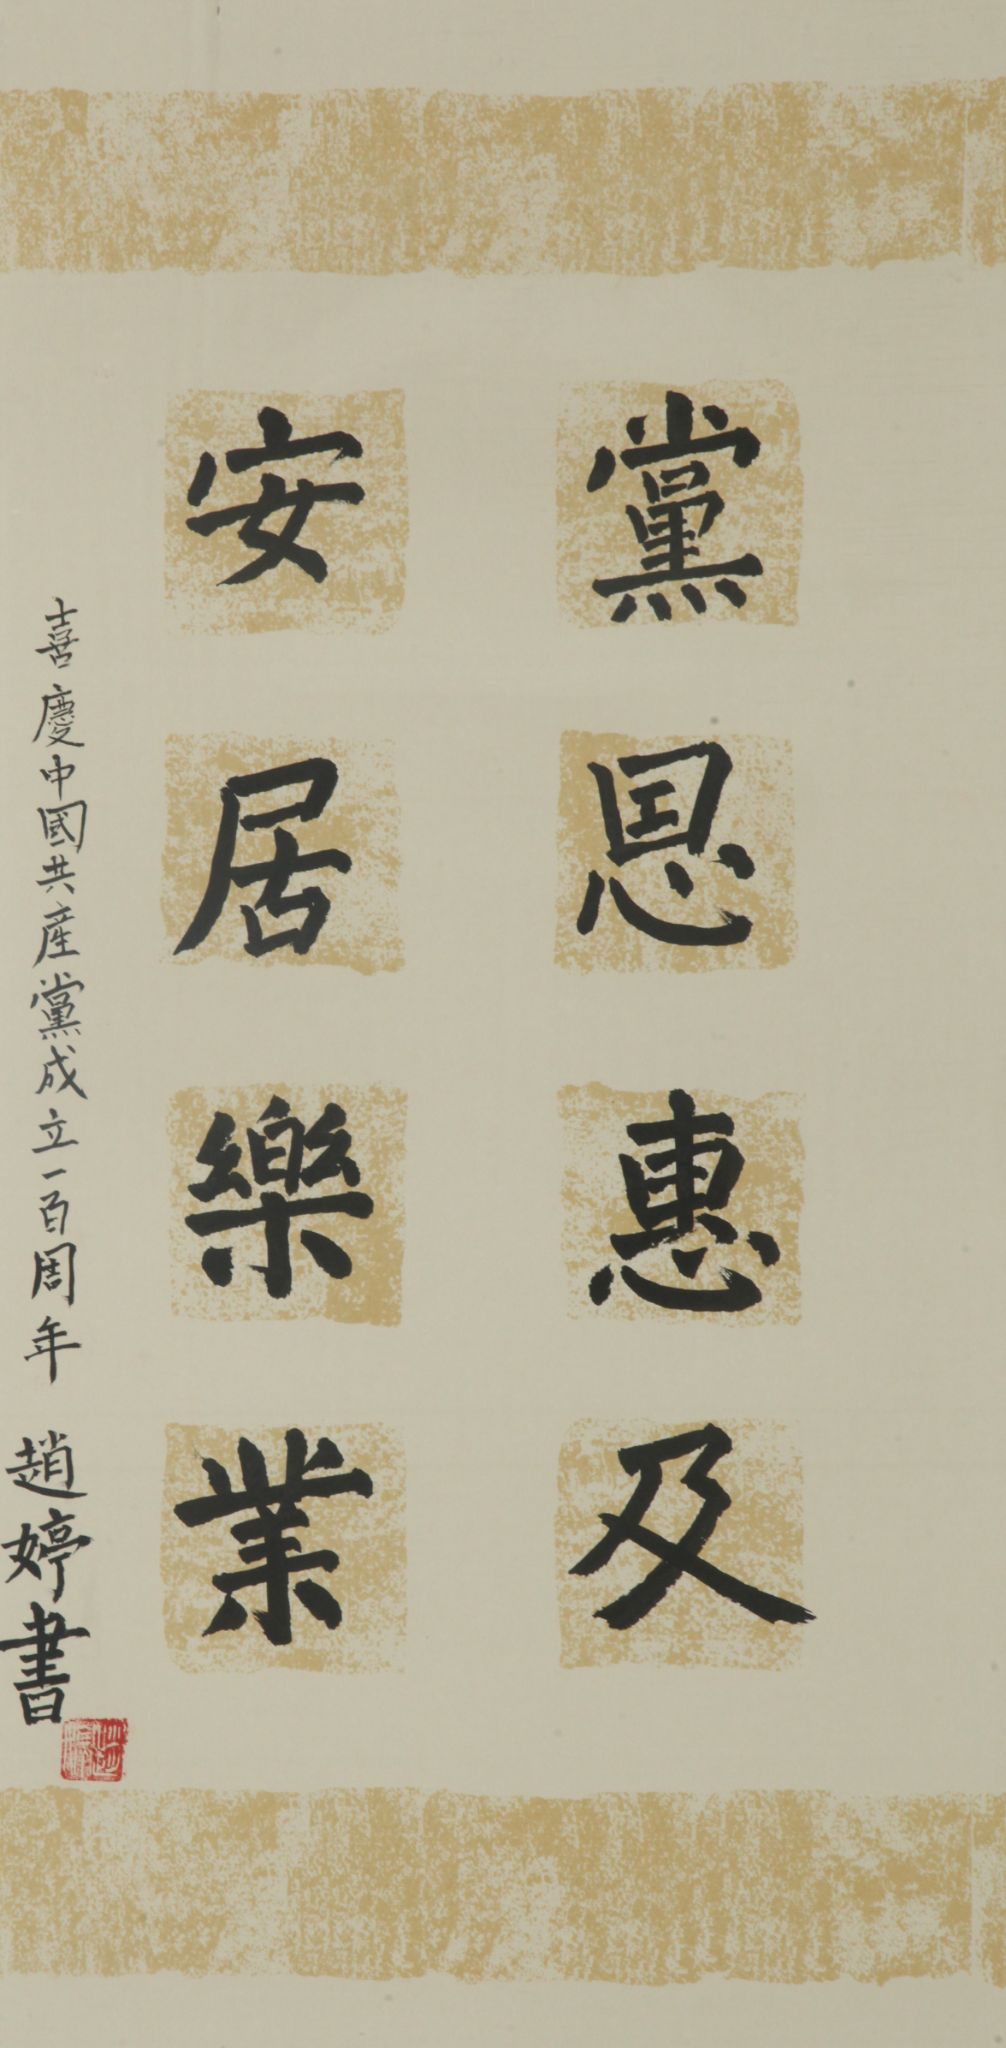 黨恩惠及
安居樂業
喜慶中國共產黨成立一百周年 趙婷書